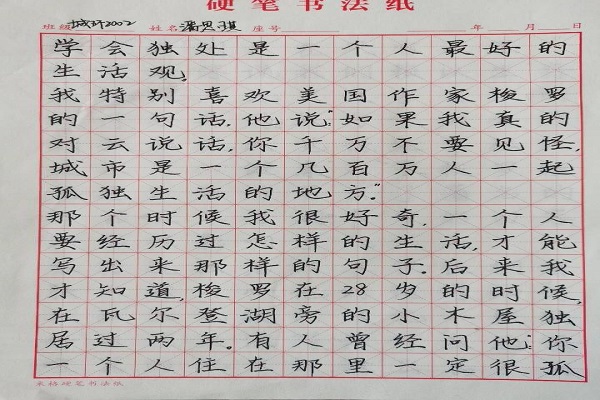 硬笔书法纸
班级 城环2002 姓名 潘思琪 座号 年 月 日
学会独处是一个人最好的
生活观。
我特别喜欢美国作家梭罗
的一句话,他说:"如果我真的
对云说话,你千万不要见怪,
城市是一个几百万人一起
孤独生活的地方。"
那个时候我很好奇,一个人
要经历过怎样的生活,才能
写出来那样的句子。后来我
才知道,梭罗在28岁的时候,
在瓦尔登湖旁的小木屋独
居过两年。有人曾经问他:你
一个人住在那里一定很孤
米格硬笔书法纸